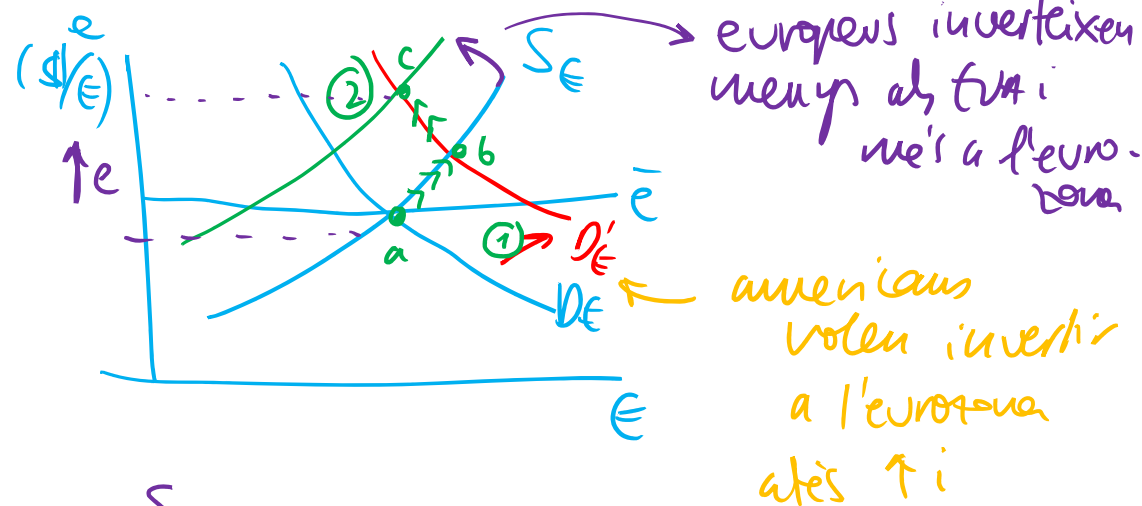 e
($/€)
↑e
②
c
b
a
①
S€
ē
D'€
D€
€
europeus inverteixen
menys als EUA i
més a l'euro-
zona
americans
volen invertir
a l'eurozona
atès ↑ i